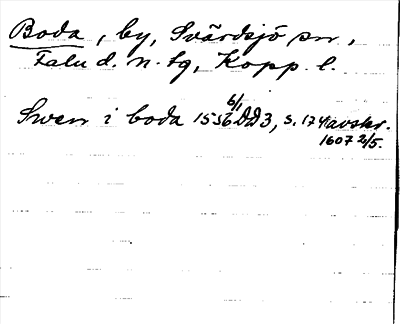 Boda, by, Svärdsjö sn,
Falu d. n. tg, Kopp. l.
Swen i boda 1556 6/1 DD3, s. 174 avskr.
1607 2/5.